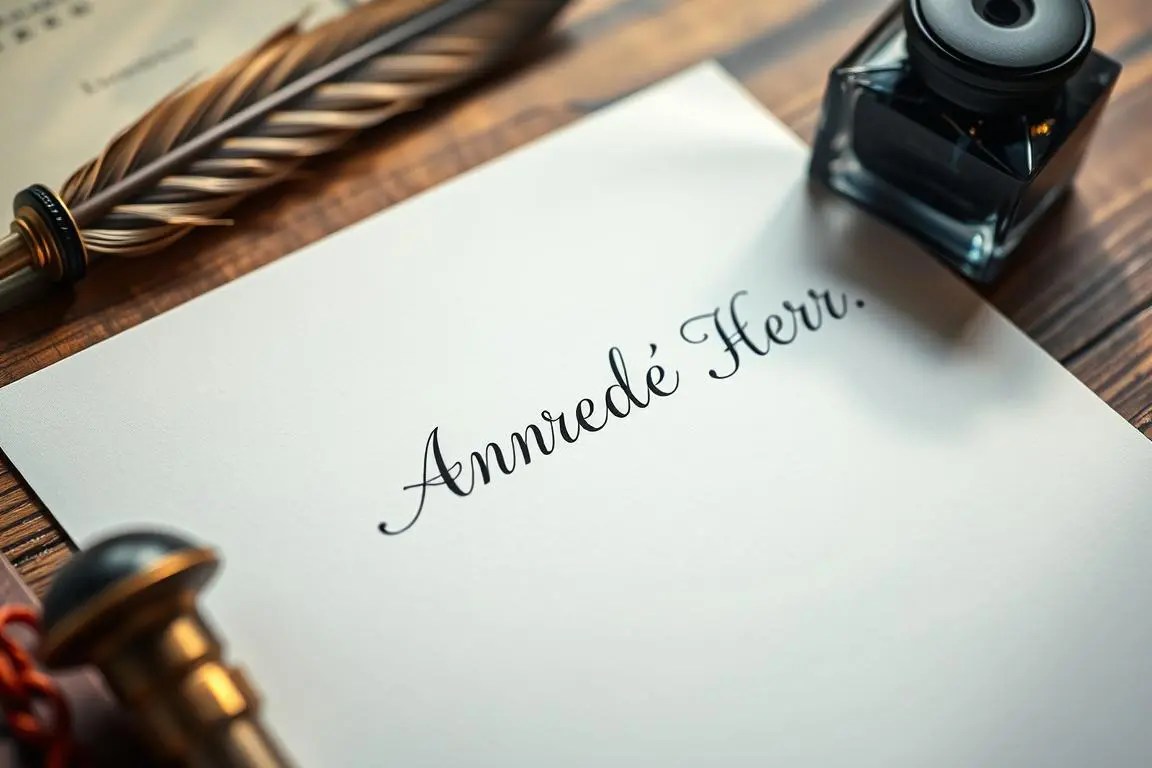 Annredé Herr.